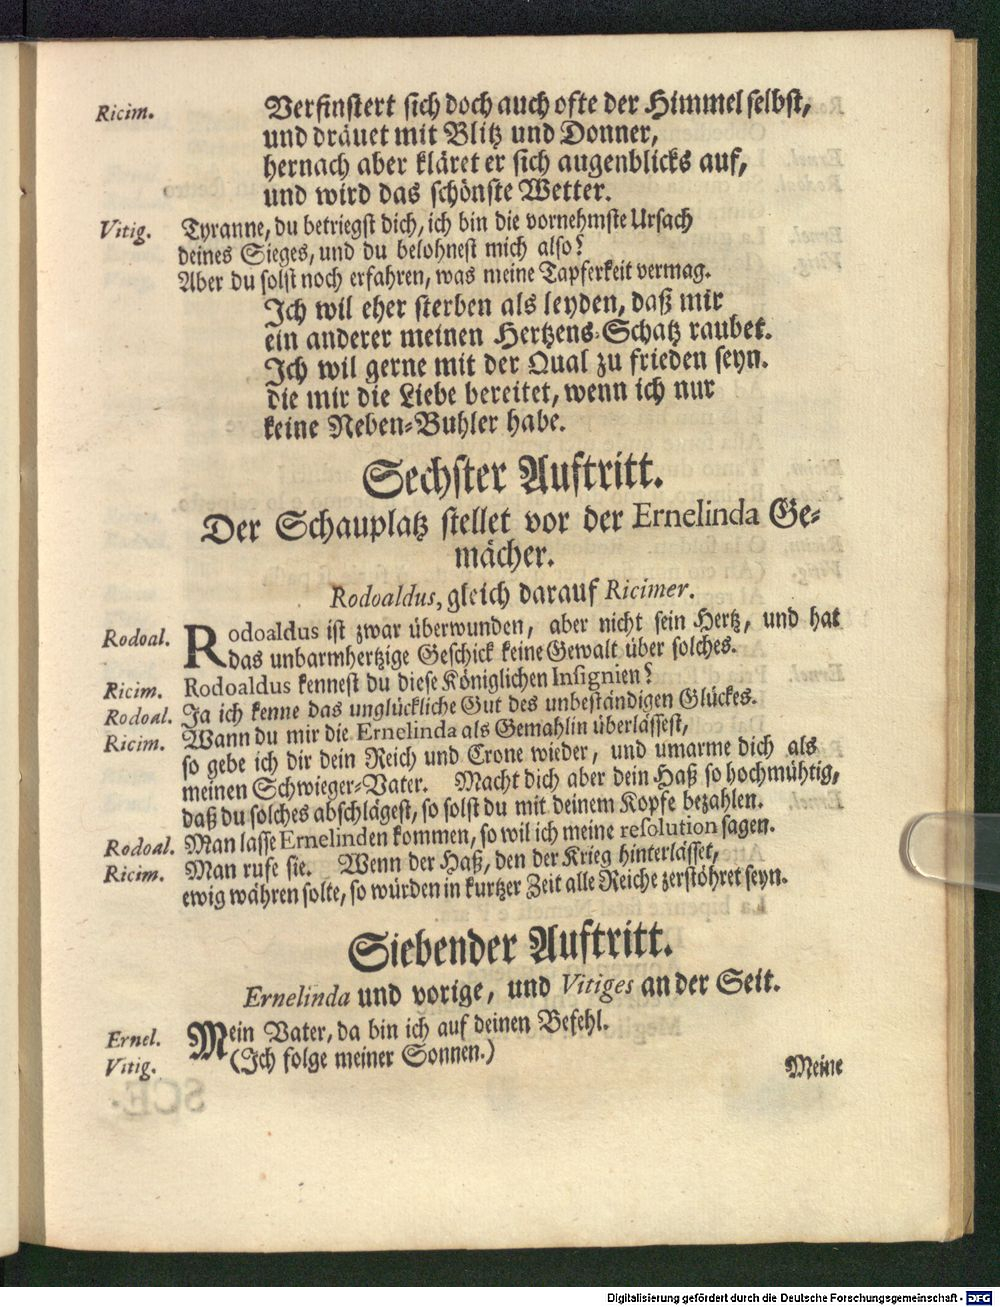 Ricim. Verfinstert sich doch auch ofte der Himmel selbst,
und dräuet mit Blitz und Donner,
hernach aber kläret er sich augenblicks auf,
und wird das schönste Wetter.
Vitig. Tyranne, du betriegst dich, ich bin die vornehmste Ursach
deines Sieges, und du belohnest mich also?
Aber du solst noch erfahren, was meine Tapferkeit vermag.
Ich wil eher sterben als leyden, daß mir
ein anderer meinen Hertzens-Schatz raubet.
Ich wil gerne mit der Qual zu frieden seyn.
die mir die Liebe bereitet, wenn ich nur
keine Neben-Buhler habe.
Sechster Auftritt.
Der Schauplatz stellet vor der Ernelinda Ge-
mächer.
Rodoaldus, gleich darauf Ricimer.
Rodoal. Rodoaldus ist zwar überwunden, aber nicht sein Hertz, und hat
das unbarmhertzige Geschick keine Gewalt über solches.
Ricim. Rodoaldus kennest du diese Königlichen Insignien?
Rodoal. Ja ich kenne das unglückliche Gut des unbeständigen Glückes.
Ricim. Wann du mir die Ernelinda als Gemahlin überlässest,
so gebe ich dir dein Reich und Crone wieder, und umarme dich als
meinen Schwieger-Vater. Macht dich aber dein Haß so hochmühtig,
daß du solches abschlägest, so solst du mit deinem Kopfe bezahlen.
Rodoal. Man lasse Ernelinden kommen, so wil ich meine resolution sagen.
Ricim. Man rufe sie. Wenn der Haß, den der Krieg hinterlässet,
ewig währen solte, so würden in kurtzer Zeit alle Reiche zerstöhret seyn.
Siebender Auftritt.
Ernelinda und vorige, und Vitiges an der Seit.
Ernel. Mein Vater, da bin ich auf deinen Befehl.
Vitig. (Ich folge meiner Sonnen.)
Meine
Digitalisierung gefördert durch die Deutsche Forschungsgemeinschaft - DFG